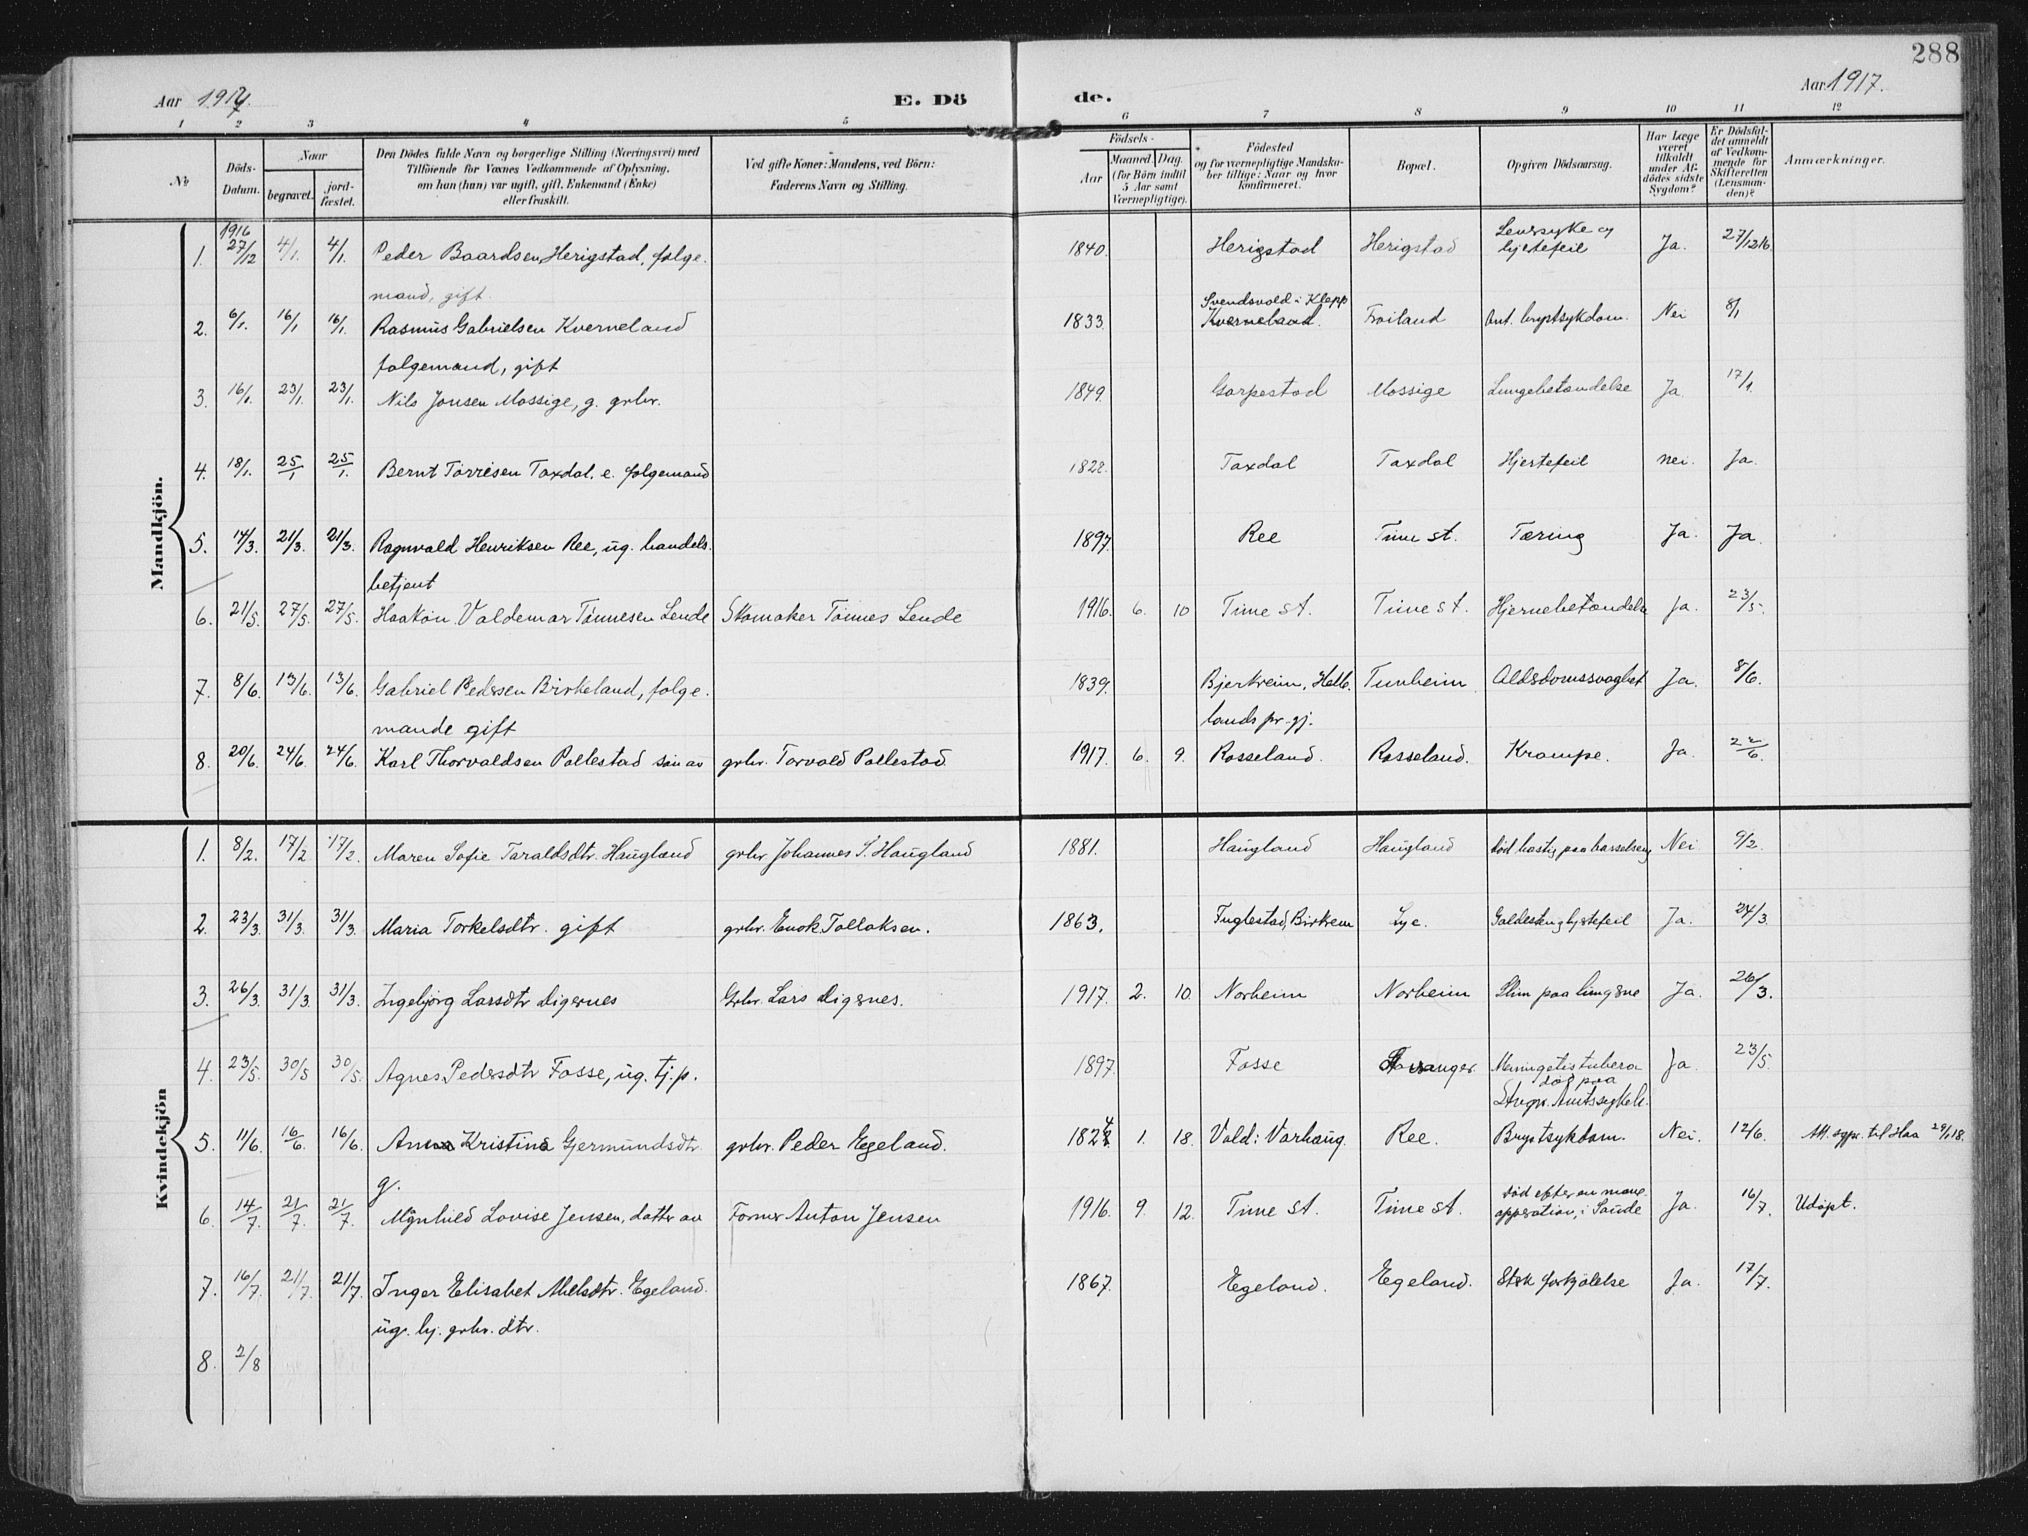 288
Aar 1917. E. Dö de. Aar 1917.
1 2 3 4 5 6 7 8 9 10 11 12
No.
Döds-Datum.
Naar
begravet.
jord-fæstet.
Den Dödes fulde Navn og borgerlige Stilling (Næringsvei) med
Tilföiende for Voxnes Vedkommende af Oplysning,
om han (hun) var ugift, gift, Enkemand (Enke)
eller fraskilt.
Ved gifte Koner: Mandens, ved Börn:
Faderens Navn og Stilling.
Födsels-
Aar
Maaned. Dag.
(for Börn indtil
5 Aar samt
Værnepligtige).
Födested
og for værnepligtige Mandska-
ber tillige: Naar og hvor
konfirmeret.
Bopæl.
Opgiven Dödsaarsag.
Har Læge
været
tilkaldt
under Af-
dödes sidste
Sygdom?
Er Dödsfal-
det anmeldt
af Vedkom-
mende for
Skifteretten
(Lensman-
den)?
Anmærkninger.
Mandkjön.
1916
1. 27/12 4/1. 4/1. Peder Baardsen Herigstad, folge- 1840. Herigstad Herigstad Leversyke og hjertefeil Ja. 27/12 16
mand, gift.
2. 6/1. 16/1 16/1. Rasmus Gabrielsen Kverneland 1833. Svendsvold i Klepp Kverneland. Froiland Ant. brystsykdom. Nei 8/1
folgemand, gift
3. 16/1. 23/1. 23/1. Nils Jonsen Mossige, g. grbr. 1849. Garpestad Mossige Lungebetændelse Ja. 17/1
4. 18/1. 25/1 25/1. Bernt Torrisen Taxdal, e. folgemand 1822. Taxdal Taxdal Hjertefeil nei. Ja.
5. 14/3. 21/3. 21/3. Ragnvald Henriksen Ree, ug. handels- 1897. Ree Time st. Tæring Ja. Ja.
betjent
6. 21/5. 27/5. 27/5. Haakon Valdemar Tønnesen Lende Skomaker Tønnes Lende 1916. 6. 10 Time St. Time st. Hjernebetændelse Ja. 23/5.
7. 8/6. 13/6. 13/6. Gabriel Pedersen Birkeland, folge- 1839. Bjerkreim, Helle- Tunheim Aldsdomssvaghet Ja. 8/6.
mande gift lands pr.gj.
8. 20/6. 24/6. 24/6. Karl Thorvaldsen Pollestad søn av grbr. Torvald Pollestad 1917. 6. 9. Rosseland. Rosseland. Krampe. Ja. 22/6.
Kvindekjön
1. 8/2. 17/2 17/2. Maren Sofie Taraldsdtr. Haugland grbr. Johannes S. Haugland 1881. Haugland Haugland død hastig paa barselseng Nei 9/2.
2. 23/3. 31/3. 31/3. Maria Torkelsdtr. gift grbr. Enok Tollaksen. 1863. Fuglestad, Birkrem Lye. Galdesten, hjertefeil Ja. 24/3
3. 26/3. 31/3 31/3. Ingebjörg Larsdtr Digernes Grbr. Lars Digernes. 1917. 2. 10. Norheim Norheim Slim paa lungene Ja. 26/3.
4. 23/5. 30/5 30/5. Agnes Pedersdtr Fosse, ug. tj.p. 1897. Fosse Stavanger Meningetis tubera Ja. 23/5.
død paa
Stvgr. Amtssykeh.
5. 11/6. 16/6. 16/6. Anna Kristine Gjermundsdtr grbr. Peder Egeland. 1824 1. 18. Vold i Varhaug. Ree. Brystsykdom. Nei. 12/6. Att. til Haa 29/1 18.
g.
6. 14/7. 21/7. 21/7. Magnhild Lovise Jensen, datter av Former Anton Jensen 1916. 9. 12. Time St. Time St. død efter en mave- Ja. 16/7. Udöpt.
opperation, i Sande
7. 16/7. 21/7. 21/7. Inger Elisabet Abelsdtr. Egeland. 1867. Egeland. Egeland. Stek forkjölelse Ja. 17/7.
ug. hj. grbr. dtr.
8. 2/8